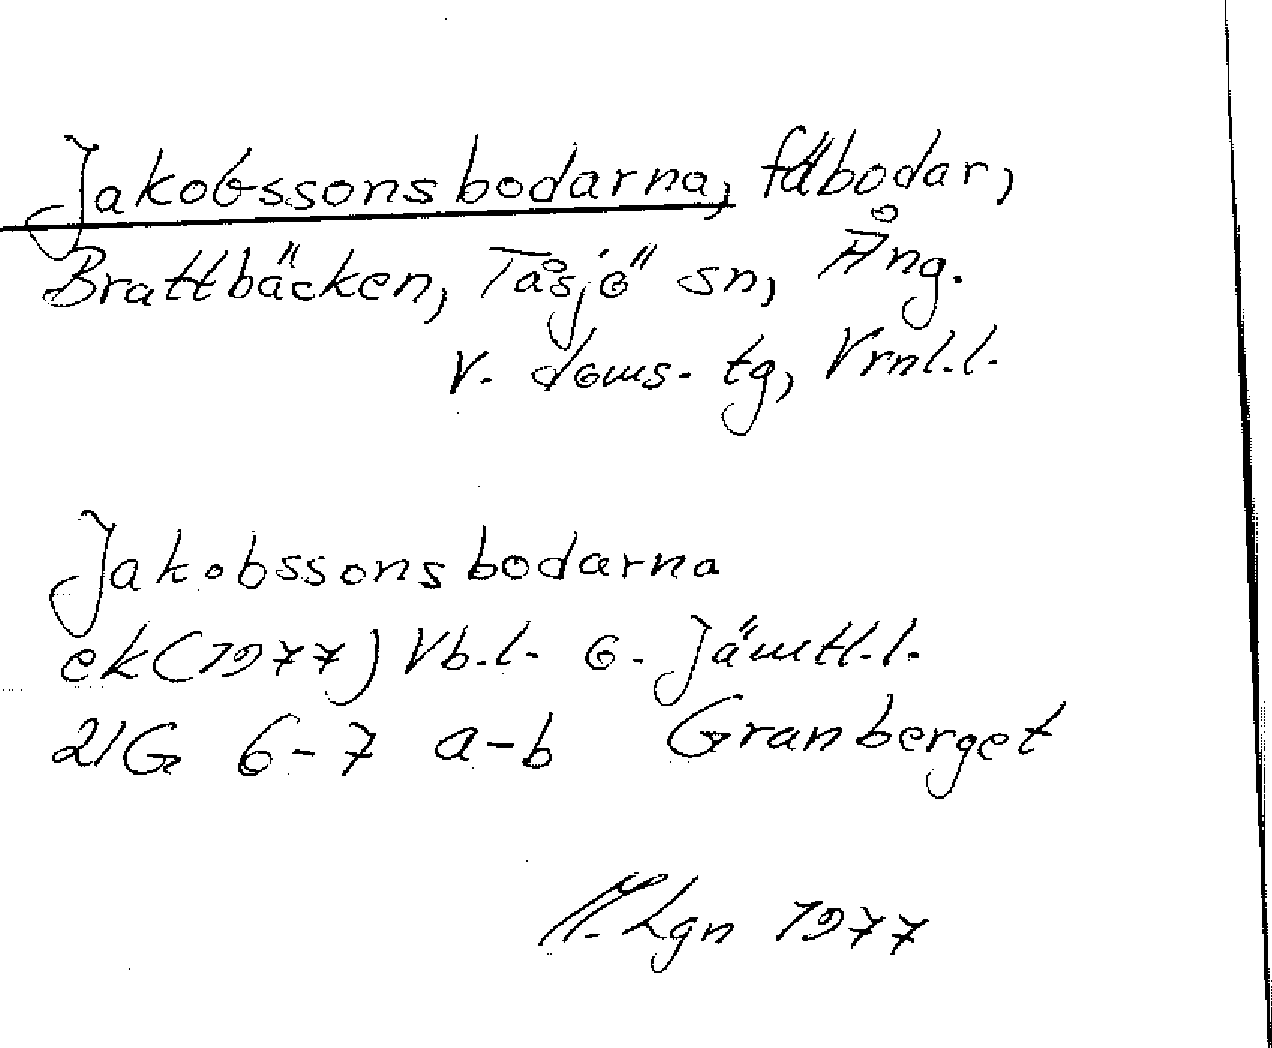 Jakobssonsbodarna, fäbodar,
Brattbäcken, Tåsjö sn, Ång.
V. doms. tg, Vrnl.l.
Jakobssonsbodarna
ek(1977) Vb.l. o. Jämtl.l.
21G 6-7 a-b Granberget
Lgn 1977